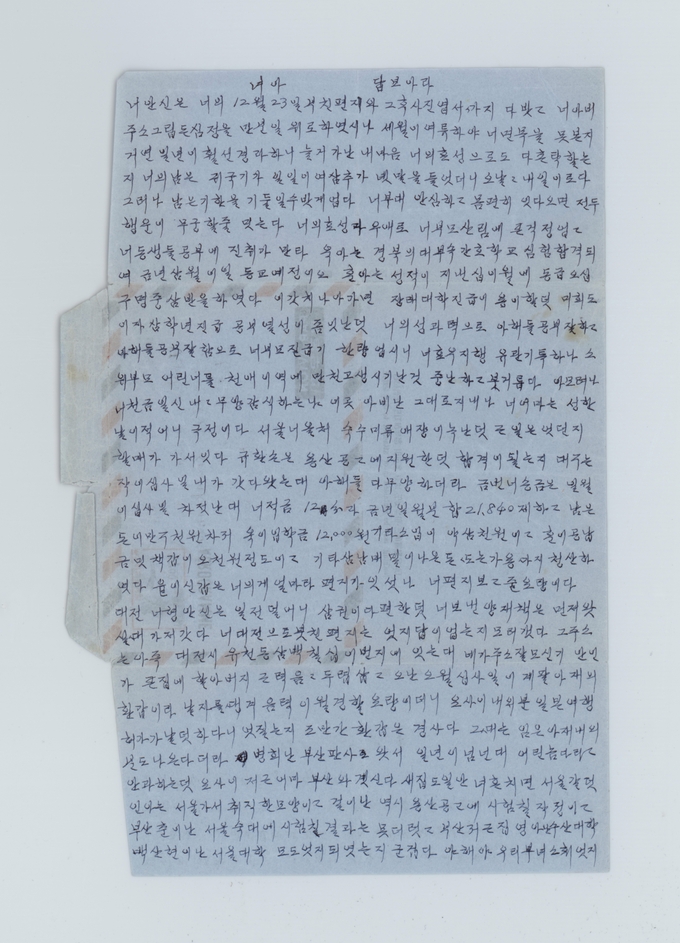 녀아 답보마다
너 만신은 너의 12월 23일 부친편지와 그 혹사진엽서까지 다 밧고 너 아버
주소그립든심정을 만신일 위로하엿시나 세월이여류하야 너면목을 못본지
거연 일년이 훨신경과하니 늘거가난 내마음 너의효성으로도 다 할는
지 너의남은 귀국기가 일일이여삼추가 옛말을들엇더니 오날고 내일이로다
그러나 남은기한을 기둘일수밧게업다 너부대 안심하고 몸편히 잇다오면 전두
행운이 무궁할줄 멋는다 너의효성과우애로 너부모산림에 걱정업고
너동생들공부에 진취가 만타 옥아는 경북의대부속간호학교 시험합격되
여 금년삼월이일 등교예정이요 훈아는 성적이 지난십이월에 등급오십
구명중삼반을하엿다 이갓치나아가면 장래대학진급이 용이할덧 미희도
이자삼학년진급 공부열성이 좀잇난덧 너의성과력으로 아해들공부잘하고
아해들공부잘함으로 너부모진급기 한량업시니 너효우지행 유관기특하나 소
위부모 어린너를 천애이역에 만친고생시기난것 중난하고붓거릅다 아모려나
너천금일신 내고무양감식하는냐 이곳 아비난 그대로지내나 너어마는 성한
날이적어니 극정이다 서울너올 숙수미류 애장이녹난덧 근일은엇던지
할매가 가서잇다 규환손은 용산공고에지원한덧 합격이될는지 대구는
작이십사일내가 갓다왓는대 아해들 다무양하더라 금번너송금은 일월
이십사일 차젓난대 너적금 12 다 금년일월분 합 21,840 제하고 남은
돈이만구천원차저 옥이입학금 12,000원 기타소입이 약삼천원이고 훈이공납
금밋책갑이 오천원정도이고 기타삼남매 밀이나온돈 또는가용까지 청산하
엿다 윤이신갑은 너의게 얼마라 편지가잇섯나 너편지보고 줄요량이다
대전 너형만신은 일전덜어니 삼권이다편한덧 너보낸양재책은 먼저왓
실대 가저갓다 너대전으로붓친편지는 엇지답이업는지모러겟다 그주소
는아주 대전시유천동삼백칠십이번지에 잇는대 네가주소잘모신기 만일
가 큰집에 할아버지 근력음고두렵삽고 오난오월십사일이 재팔아재외
환갑이라 날자를댕겨 음력이월경할요량이더니 요사이내외분일본여행
허가가날덧하다니 엇질는지 조만간 환갑은 경사다 그때는 임은아재내외
분도나온다더라 병희난 부산판사로 왓서 일년이넘넌대 어린놈다리고
안과하는덧 요사이 저근어마 부산와계신다 새집도일만 너혼치면 서울갈덧
인아는 서울가서취직한모양이고 걸이난 역시 용산공고에 시험칠작정이고
부산준이난 서울숙대에시험칠결과는 못더럿고 부산저근집영아난부산대학
백산현이난 서울대학 모도엇지되엿는지 군겁다 아해야 우리부녀소회엇지